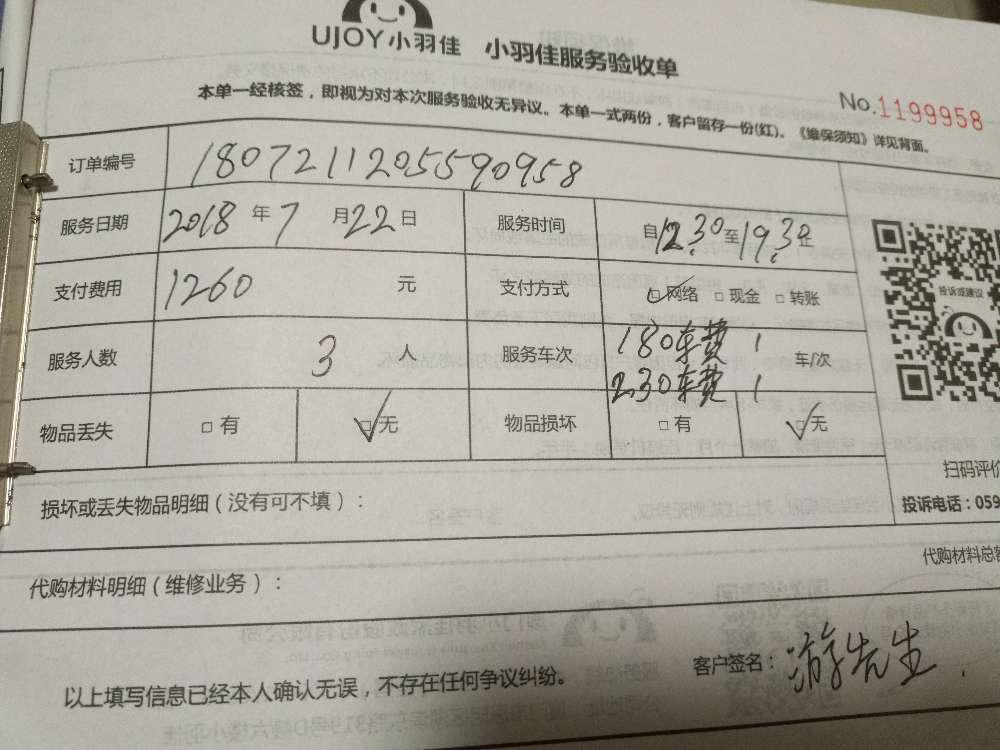 UJOY小羽佳 小羽佳服务验收单
No.1199958
本单一经核签，即视为对本次服务验收无异议。本单一式两份，客户留存一份(红)。《维保须知》详见背面。
订单编号 1807211205590958
服务日期 2018年7月22日 服务时间 自12.30至19.30止
支付费用 1260 元 支付方式 ☑网络 □现金 □转账
服务人数 3 人 服务车次 180车费 1 车/次
230车费 1
物品丢失 □有 ☑无 物品损坏 □有 ☑无
投诉或建议
扫码评价
投诉电话：059
损坏或丢失物品明细（没有可不填）：
代购材料总额
代购材料明细（维修业务）：
以上填写信息已经本人确认无误，不存在任何争议纠纷。 客户签名：游先生